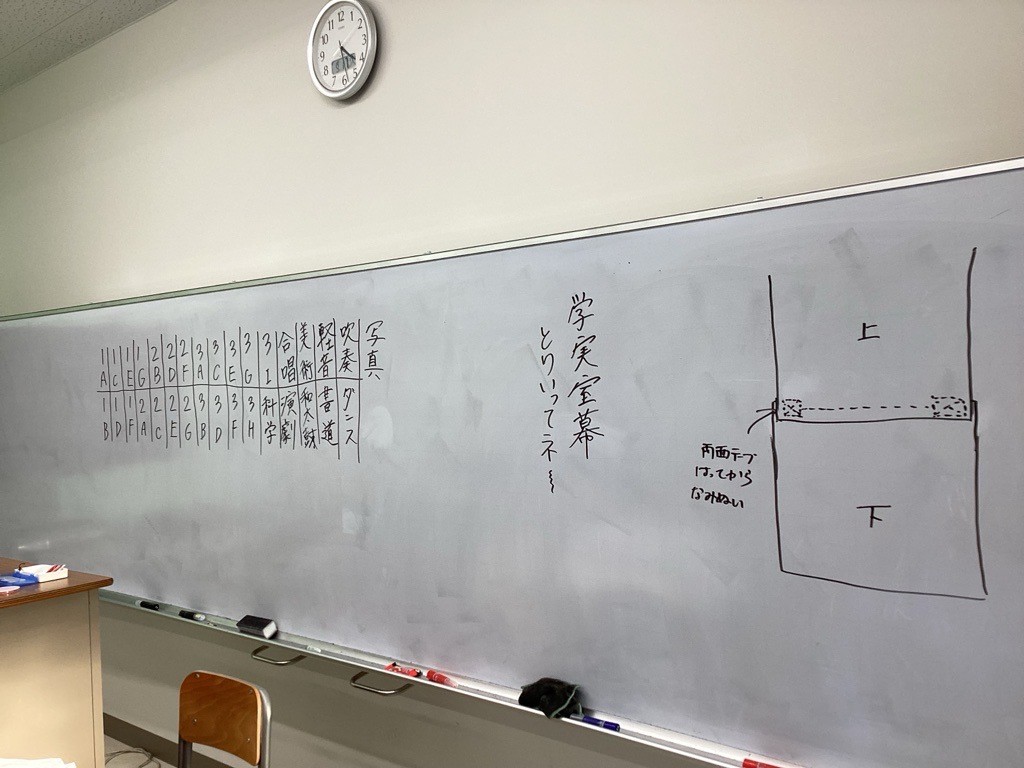 写真
吹奏 ダンス
軽音 書道
美術 和太鼓
合唱 演劇
3I 科学
3G 3H
3E 3F
3C 3D
3A 3B
2F 2G
2D 2E
2B 2C
1G 2A
1E 1F
1C 1D
1A 1B
学実室幕
とりいってネ
上
両面テープ
はってから
なみぬい
下
12
1
2
3
4
5
6
7
8
9
10
11